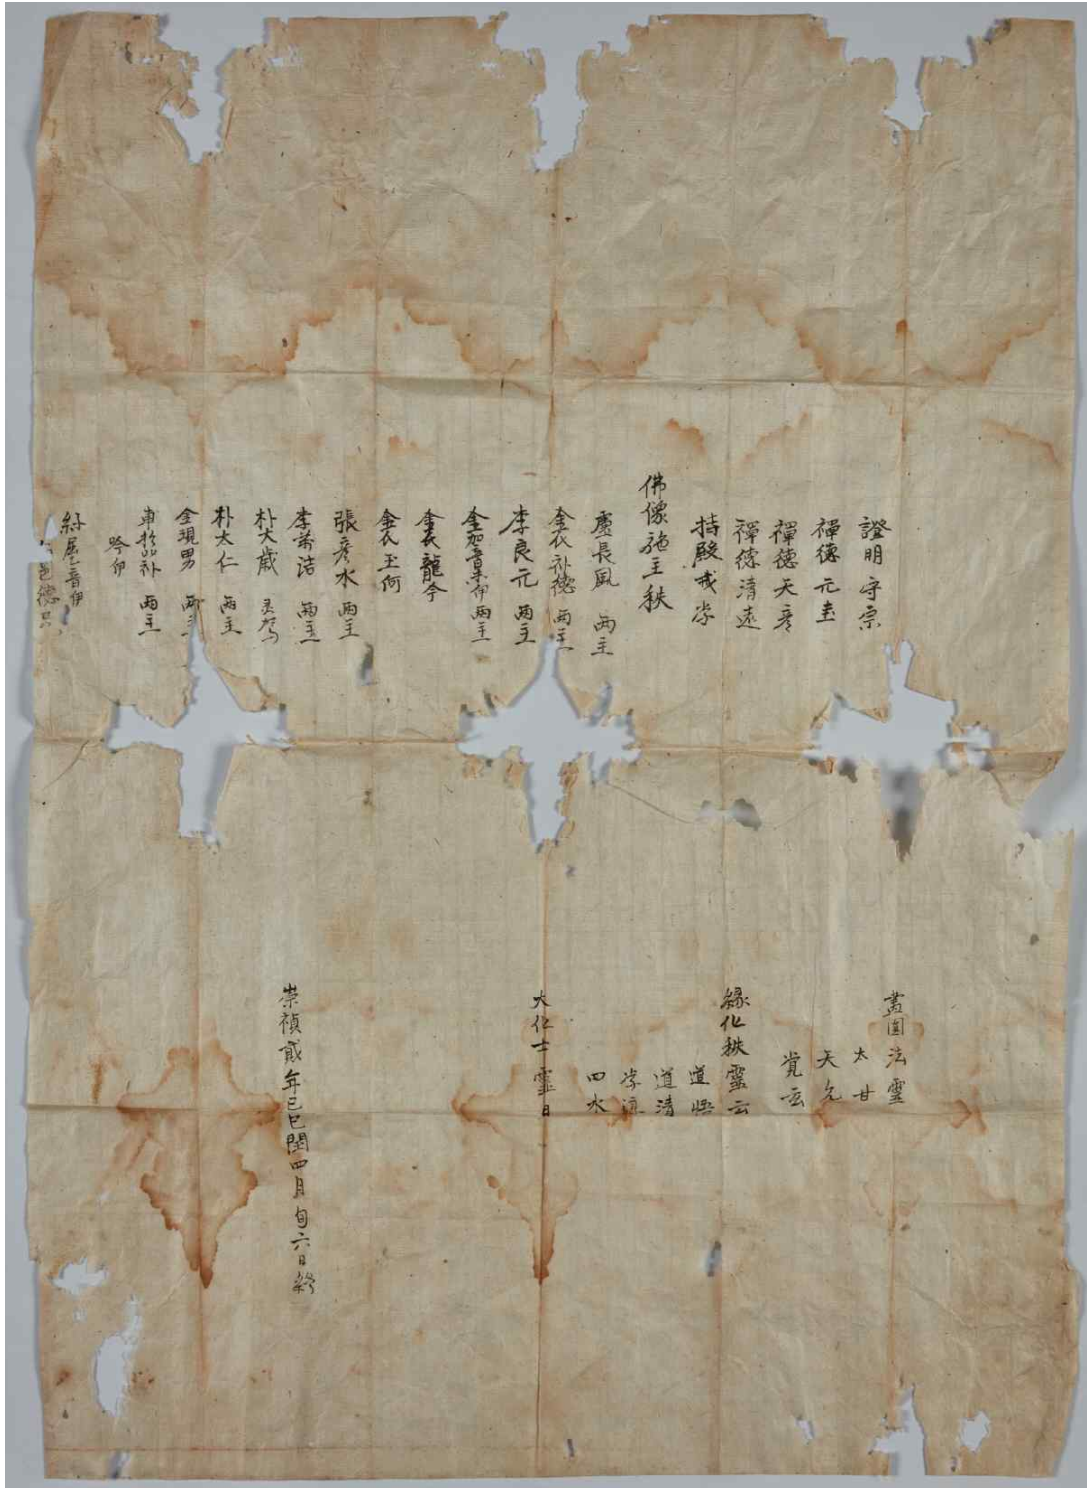 證明守宗
禪德元圭
禪德天彥
禪德清遠
持殿戒學
佛像施主秩
盧長風 兩主
金衣補德 兩主
李良元 兩主
金加音 伊兩主
金衣龍今
金衣玉何
張彥水 兩主
李 浩 兩主
朴大歲 灵駕
朴大仁 兩主
金現男 兩主
車 补 兩主
今卯
音伊
德只
畵圓法靈
太甘
天允
覚玄
緣化秩靈云
道悟
道清
學
四水
大化士靈日
崇禎貳年己巳閏四月旬六日終